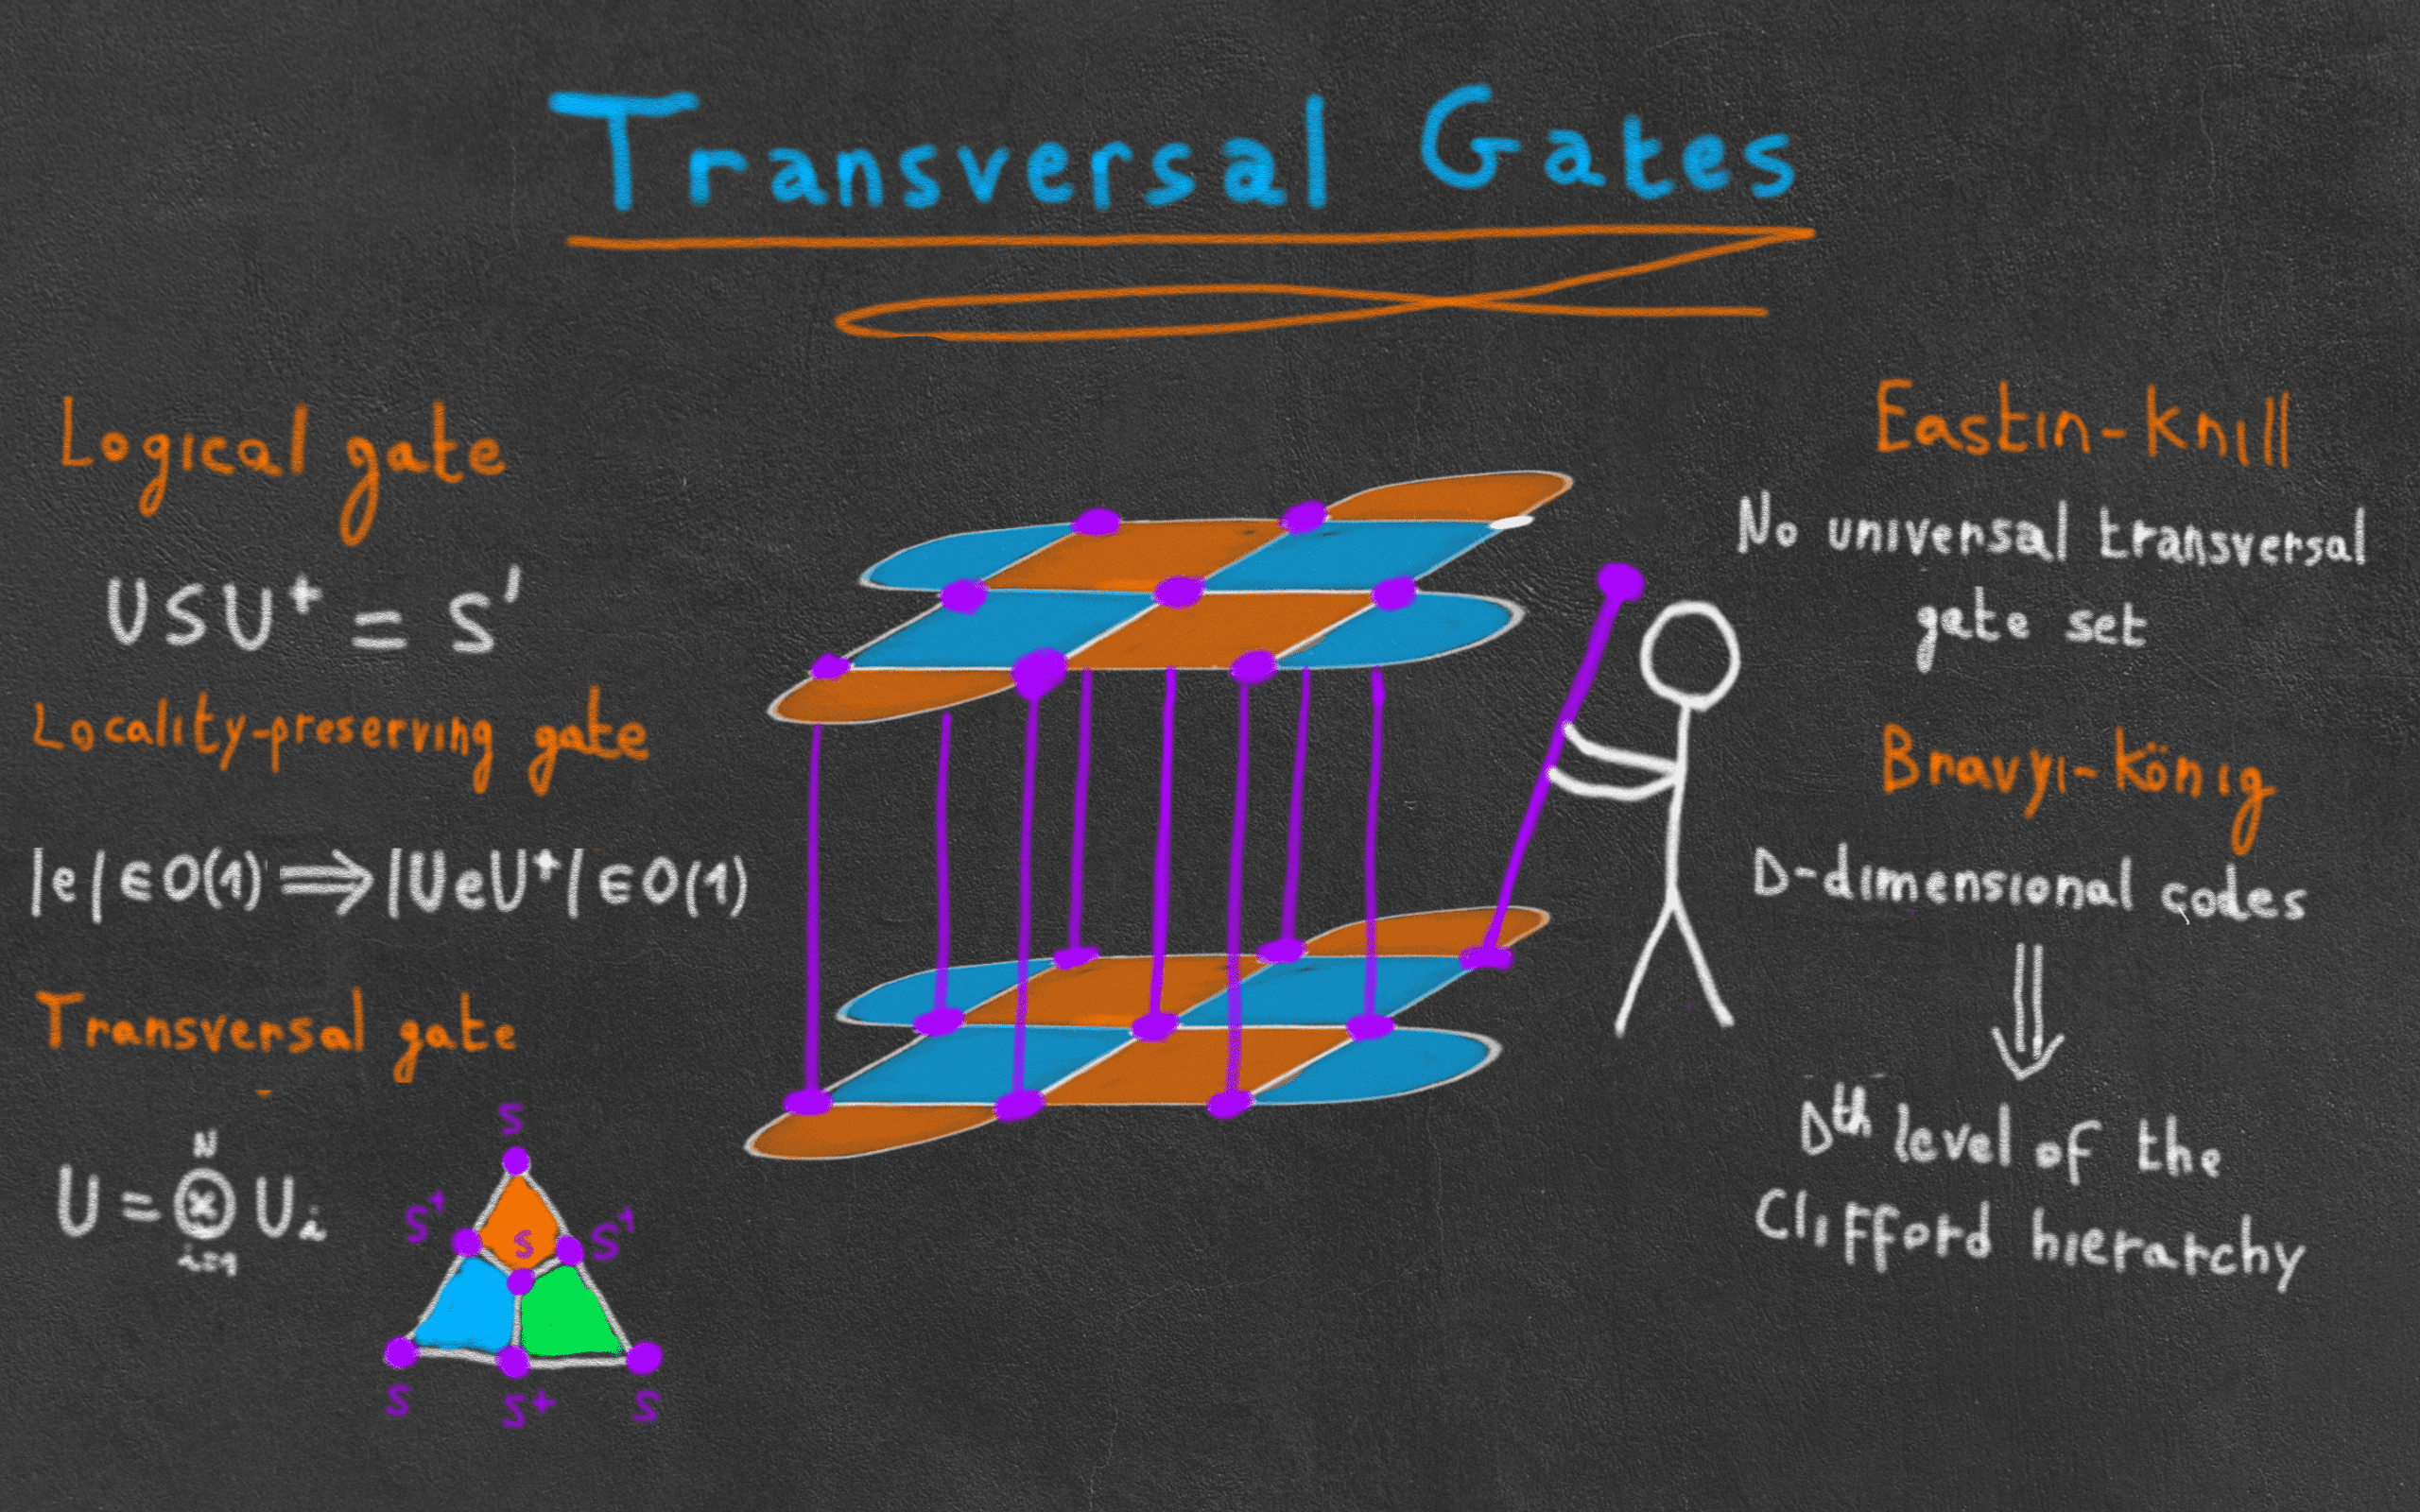 Transversal Gates
Logical gate
USU† = S'
Locality-preserving gate
|e| ∈ O(1) ⟹ |UeU†| ∈ O(1)
Transversal gate
N
U = ⊗ Ui
i=1
S
S†
S
S†
S
S†
S
Eastin-Knill
No universal transversal
gate set
Bravyi-König
D-dimensional codes
⇓
Dth level of the
Clifford hierarchy